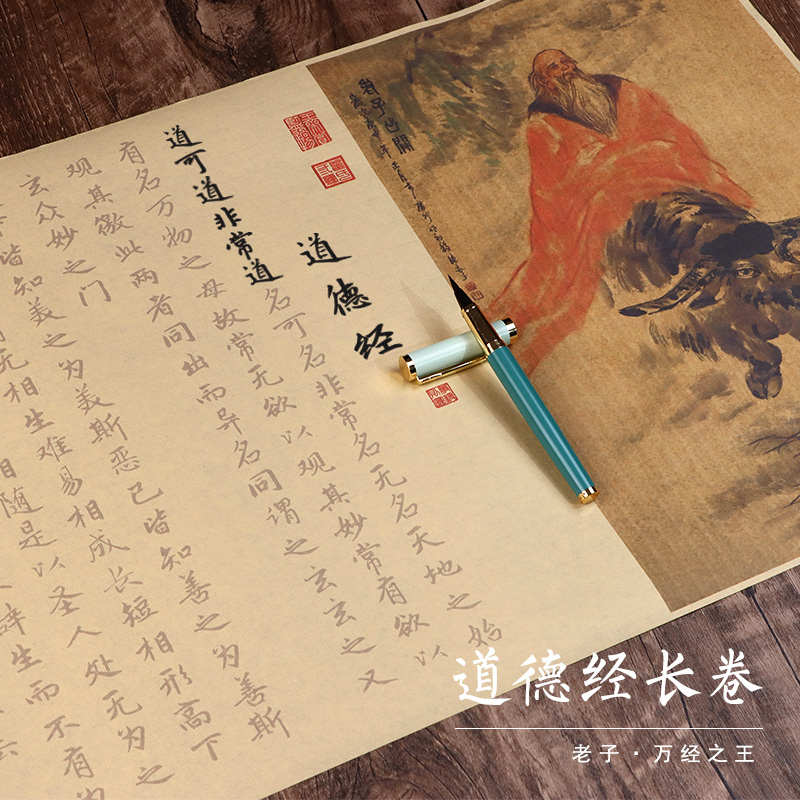 老子出關
道德经
道可道非常道名可名非常名无名天地之始
有名万物之母故常无欲以观其妙常有欲以
观其徼此两者同出而异名同谓之玄玄之又
玄众妙之门
皆知美之为美斯恶已皆知善之为善斯
无相生难易相成长短相形高下
相随是以圣人处无为之
辞生而不有
道德经长卷
老子·万经之王